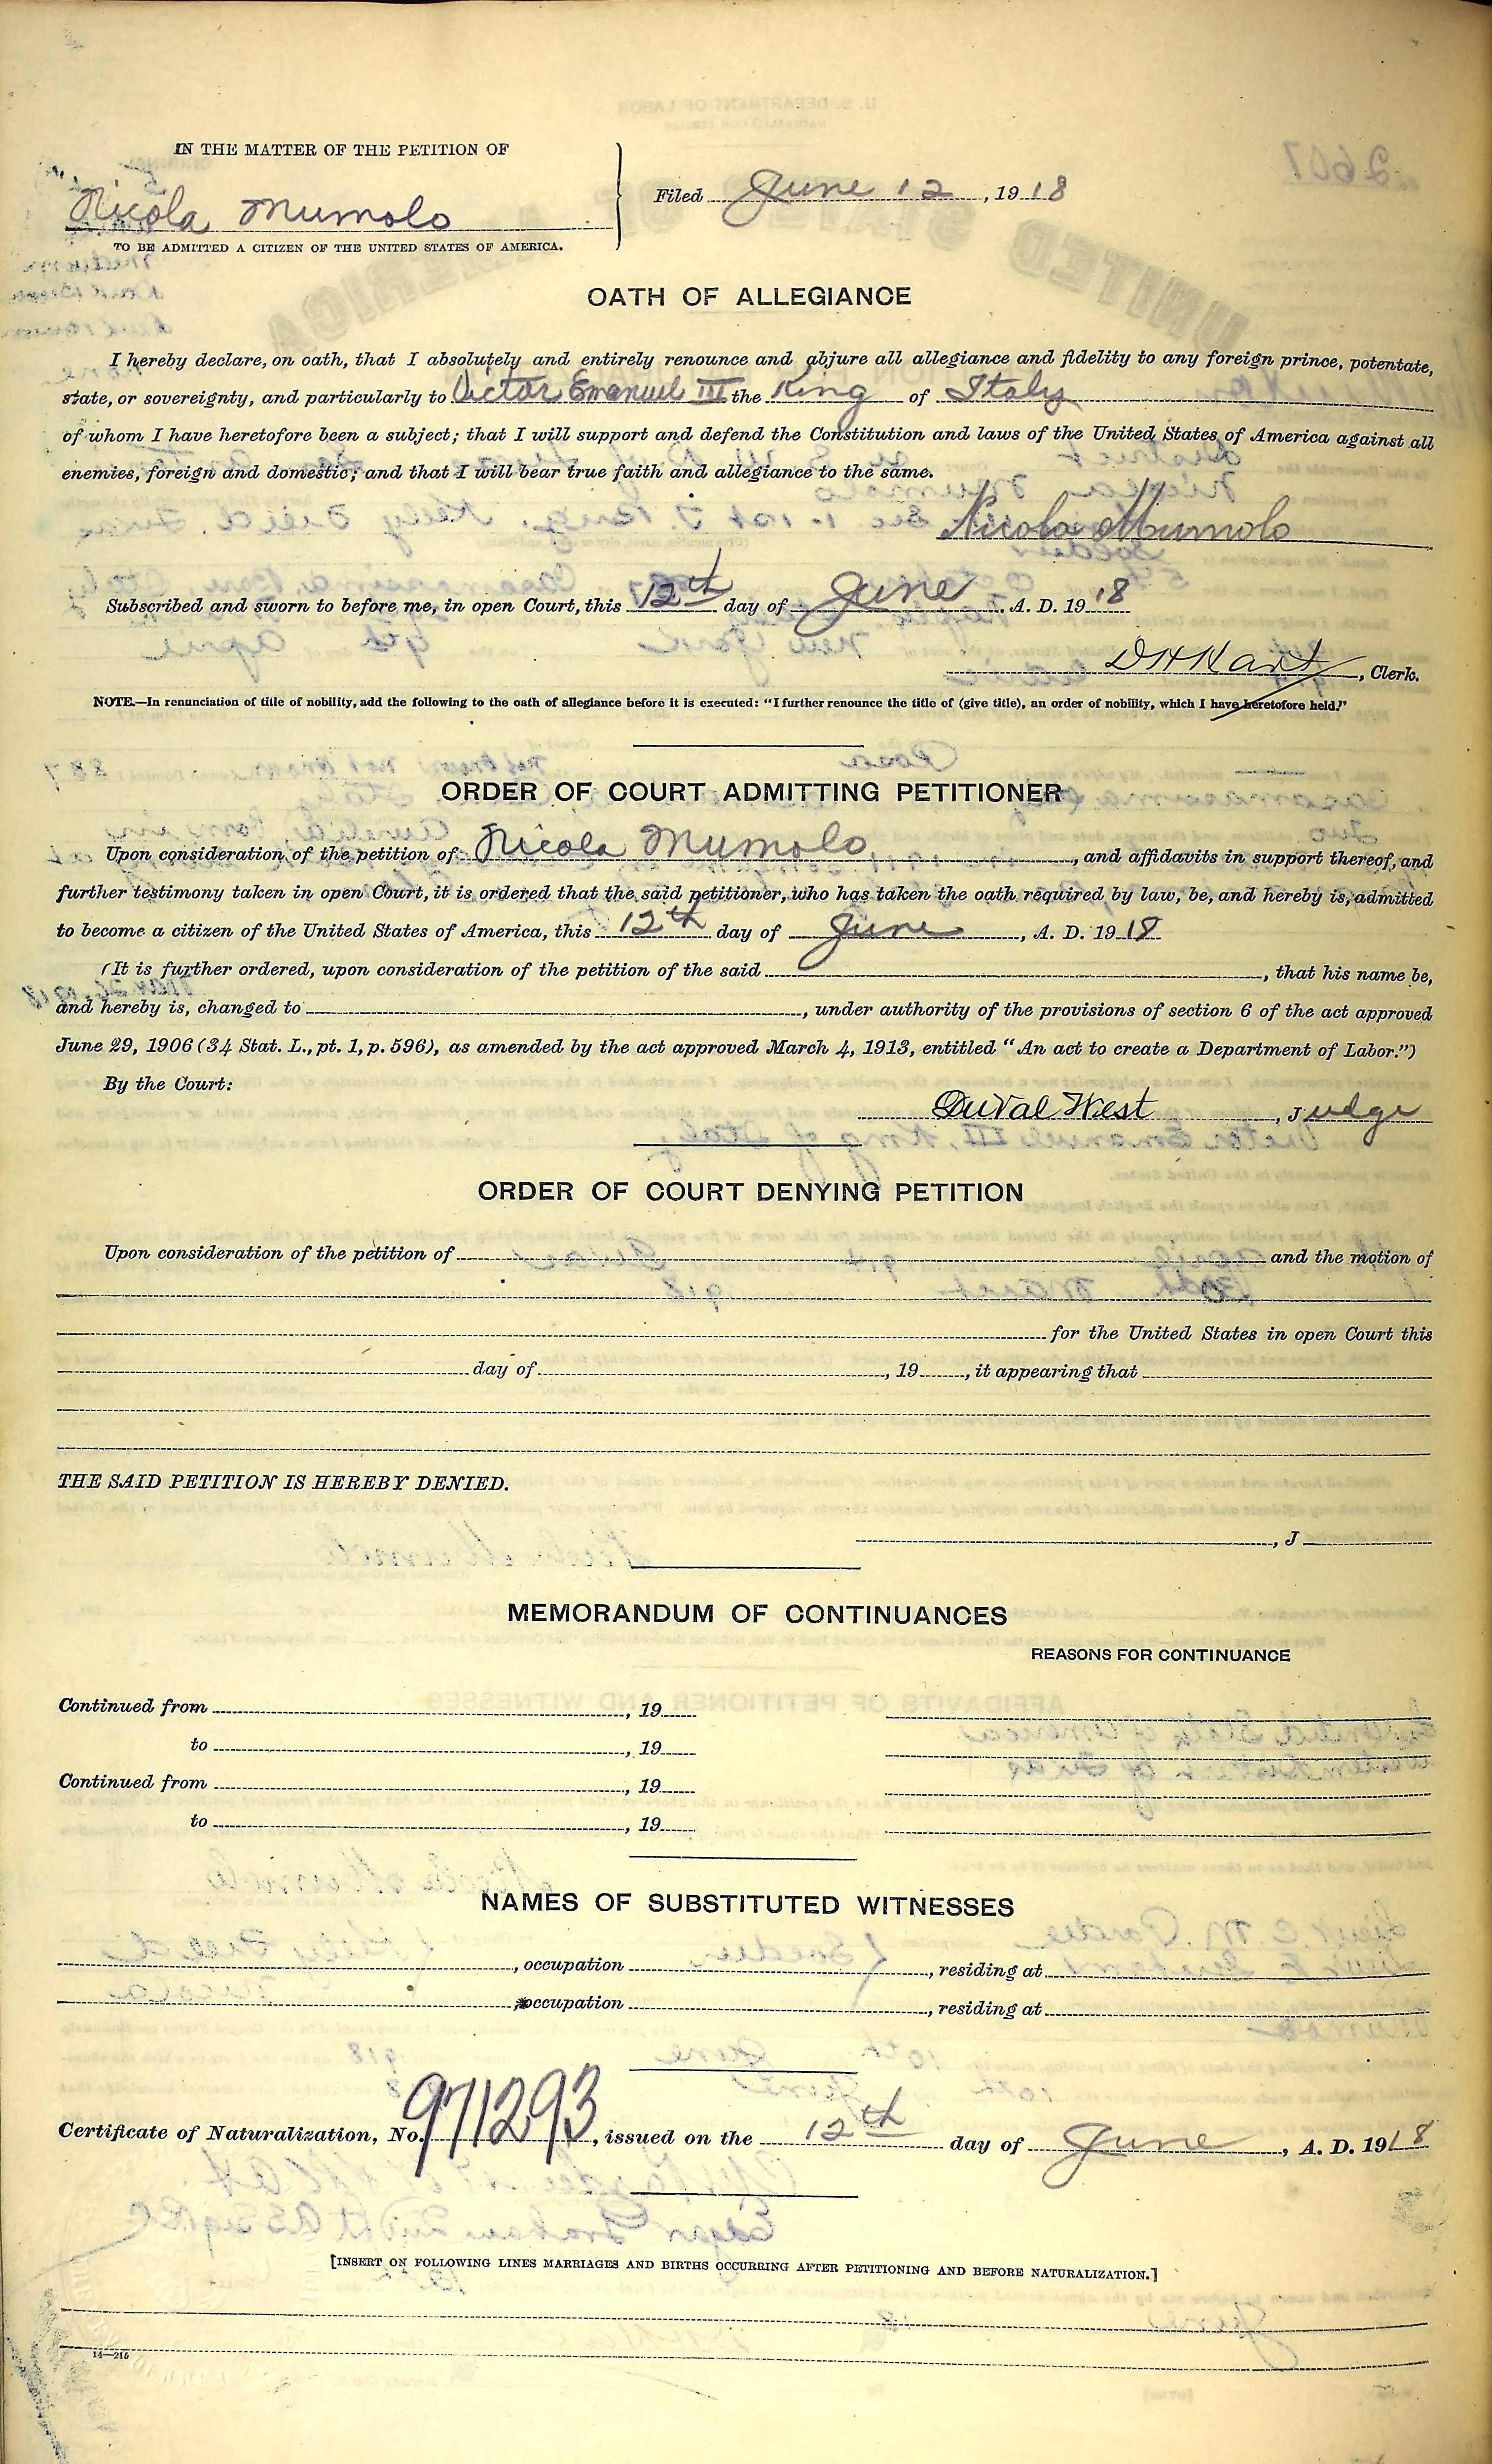 IN THE MATTER OF THE PETITION OF
Nicola Mumolo
TO BE ADMITTED A CITIZEN OF THE UNITED STATES OF AMERICA.
Filed June 12, 1918
OATH OF ALLEGIANCE
I hereby declare, on oath, that I absolutely and entirely renounce and abjure all allegiance and fidelity to any foreign prince, potentate,
state, or sovereignty, and particularly to Victor Emanuel III the King of Italy
of whom I have heretofore been a subject; that I will support and defend the Constitution and laws of the United States of America against all
enemies, foreign and domestic; and that I will bear true faith and allegiance to the same.
Nicola Mumolo
Subscribed and sworn to before me, in open Court, this 12th day of June A. D. 19 18
D H Hart, Clerk.
NOTE.—In renunciation of title of nobility, add the following to the oath of allegiance before it is executed: "I further renounce the title of (give title), an order of nobility, which I have heretofore held."
ORDER OF COURT ADMITTING PETITIONER
Upon consideration of the petition of Nicola Mumolo, and affidavits in support thereof, and
further testimony taken in open Court, it is ordered that the said petitioner, who has taken the oath required by law, be, and hereby is, admitted
to become a citizen of the United States of America, this 12th day of June, A. D. 19 18
(It is further ordered, upon consideration of the petition of the said , that his name be,
and hereby is, changed to , under authority of the provisions of section 6 of the act approved
June 29, 1906 (34 Stat. L., pt. 1, p. 596), as amended by the act approved March 4, 1913, entitled "An act to create a Department of Labor.")
By the Court:
DuVal West, Judge
ORDER OF COURT DENYING PETITION
Upon consideration of the petition of and the motion of
for the United States in open Court this
day of , 19 , it appearing that
THE SAID PETITION IS HEREBY DENIED.
, J
MEMORANDUM OF CONTINUANCES
REASONS FOR CONTINUANCE
Continued from , 19
to , 19
Continued from , 19
to , 19
NAMES OF SUBSTITUTED WITNESSES
, occupation , residing at
, occupation , residing at
Certificate of Naturalization, No. 971293, issued on the 12th day of June, A. D. 1918
[INSERT ON FOLLOWING LINES MARRIAGES AND BIRTHS OCCURRING AFTER PETITIONING AND BEFORE NATURALIZATION.]
14—216